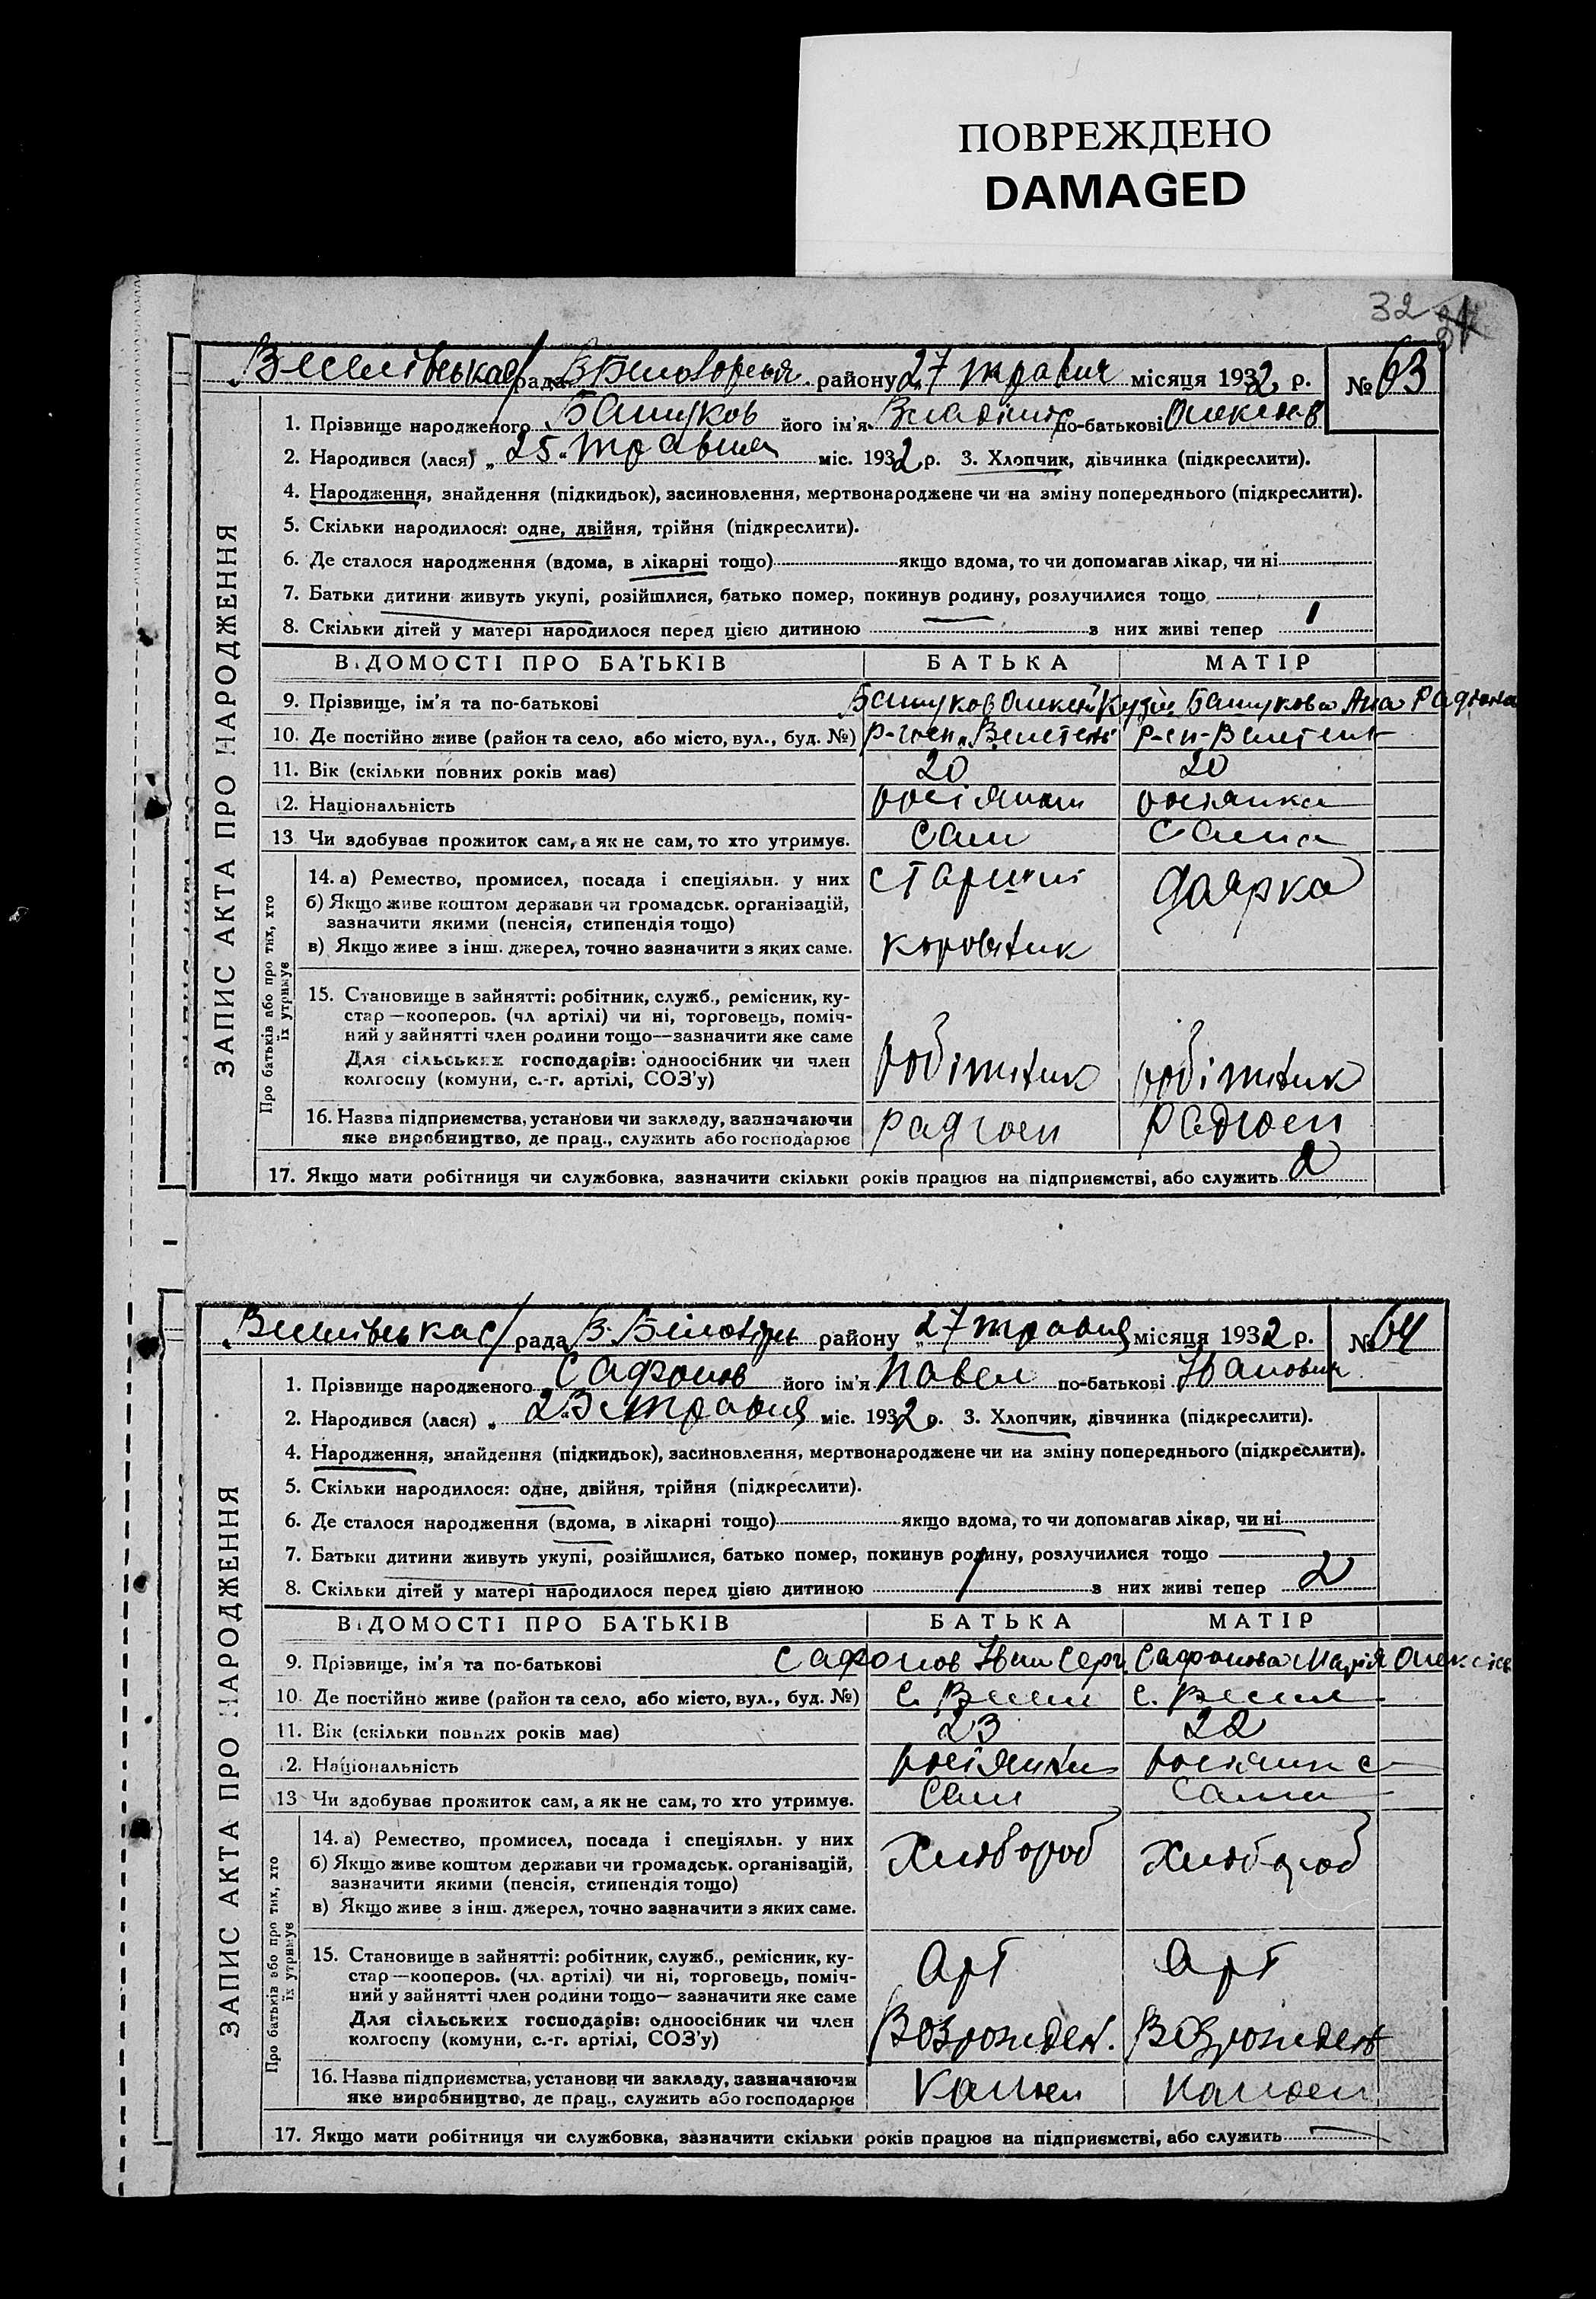 ПОВРЕЖДЕНО
DAMAGED
32
рада району 27 травня місяця 1932 р. № 63
1. Прізвище народженого Башуков його ім'я Владімір по-батькові Олексієв
2. Народився (лася) „ 25 " травня міс. 1932 р. 3. Хлопчик, дівчинка (підкреслити).
4. Народження, знайдення (підкидьок), засиновлення, мертвонароджене чи на зміну попереднього (підкреслити).
5. Скільки народилося: одне, двійня, трійня (підкреслити).
6. Де сталося народження (вдома, в лікарні тощо) якщо вдома, то чи допомагав лікар, чи ні
7. Батьки дитини живуть укупі, розійшлися, батько помер, покинув родину, розлучилися тощо
8. Скільки дітей у матері народилося перед цією дитиною — з них живі тепер 1
ВІДОМОСТІ ПРО БАТЬКІВ БАТЬКА МАТІР
9. Прізвище, ім'я та по-батькові Башуков Башукова
10. Де постійно живе (район та село, або місто, вул., буд. №)
11. Вік (скільки повних років має) 20 20
12. Національність росіянин росіянка
13. Чи здобуває прожиток сам, а як не сам, то хто утримує. сам сама
14. а) Ремество, промисел, посада і спеціяльн. у них старший доярка
б) Якщо живе коштом держави чи громадськ. організацій,
зазначити якими (пенсія, стипендія тощо)
в) Якщо живе з інш. джерел, точно зазначити з яких саме. коровник
15. Становище в зайнятті: робітник, служб., ремісник, ку-
стар—кооперов. (чл. артілі) чи ні, торговець, поміч-
ний у зайнятті член родини тощо—зазначити яке саме
Для сільських господарів: одноосібник чи член
колгоспу (комуни, с.-г. артілі, СОЗ'у) робітник робітник
16. Назва підприємства, установи чи закладу, зазначаючи
яке виробництво, де прац., служить або господарює радгосп радгосп
17. Якщо мати робітниця чи службовка, зазначити скільки років працює на підприємстві, або служить 2
ЗАПИС АКТА ПРО НАРОДЖЕННЯ
Про батьків або про тих, хто
їх утримує
рада району „27 травня місяця 1932 р. № 64
1. Прізвище народженого Сафонов його ім'я Павел по-батькові Іванович
2. Народився (лася) „ 23 " травня міс. 1932 р. 3. Хлопчик, дівчинка (підкреслити).
4. Народження, знайдення (підкидьок), засиновлення, мертвонароджене чи на зміну попереднього (підкреслити).
5. Скільки народилося: одне, двійня, трійня (підкреслити).
6. Де сталося народження (вдома, в лікарні тощо) якщо вдома, то чи допомагав лікар, чи ні
7. Батьки дитини живуть укупі, розійшлися, батько помер, покинув родину, розлучилися тощо —
8. Скільки дітей у матері народилося перед цією дитиною 1 з них живі тепер 2
ВІДОМОСТІ ПРО БАТЬКІВ БАТЬКА МАТІР
9. Прізвище, ім'я та по-батькові Сафонов Іван Серг. Сафонова Марія
10. Де постійно живе (район та село, або місто, вул., буд. №) с. с.
11. Вік (скільки повних років має) 23 22
12. Національність росіянин росіянка
13 Чи здобуває прожиток сам, а як не сам, то хто утримує. сам сама
14. а) Ремество, промисел, посада і спеціяльн. у них Хлібороб Хлібороб
б) Якщо живе коштом держави чи громадськ. організацій,
зазначити якими (пенсія, стипендія тощо)
в) Якщо живе з інш. джерел, точно зазначити з яких саме.
15. Становище в зайнятті: робітник, служб., ремісник, ку- Арт Арт
стар—кооперов. (чл. артілі) чи ні, торговець, поміч-
ний у зайнятті член родини тощо—зазначити яке саме
Для сільських господарів: одноосібник чи член
колгоспу (комуни, с.-г. артілі, СОЗ'у) Возрожден. Возрожден
16. Назва підприємства, установи чи закладу, зазначаючи
яке виробництво, де прац., служить або господарює Колгосп Колгосп
17. Якщо мати робітниця чи службовка, зазначити скільки років працює на підприємстві, або служить —
ЗАПИС АКТА ПРО НАРОДЖЕННЯ
Про батьків або про тих, хто
їх утримує